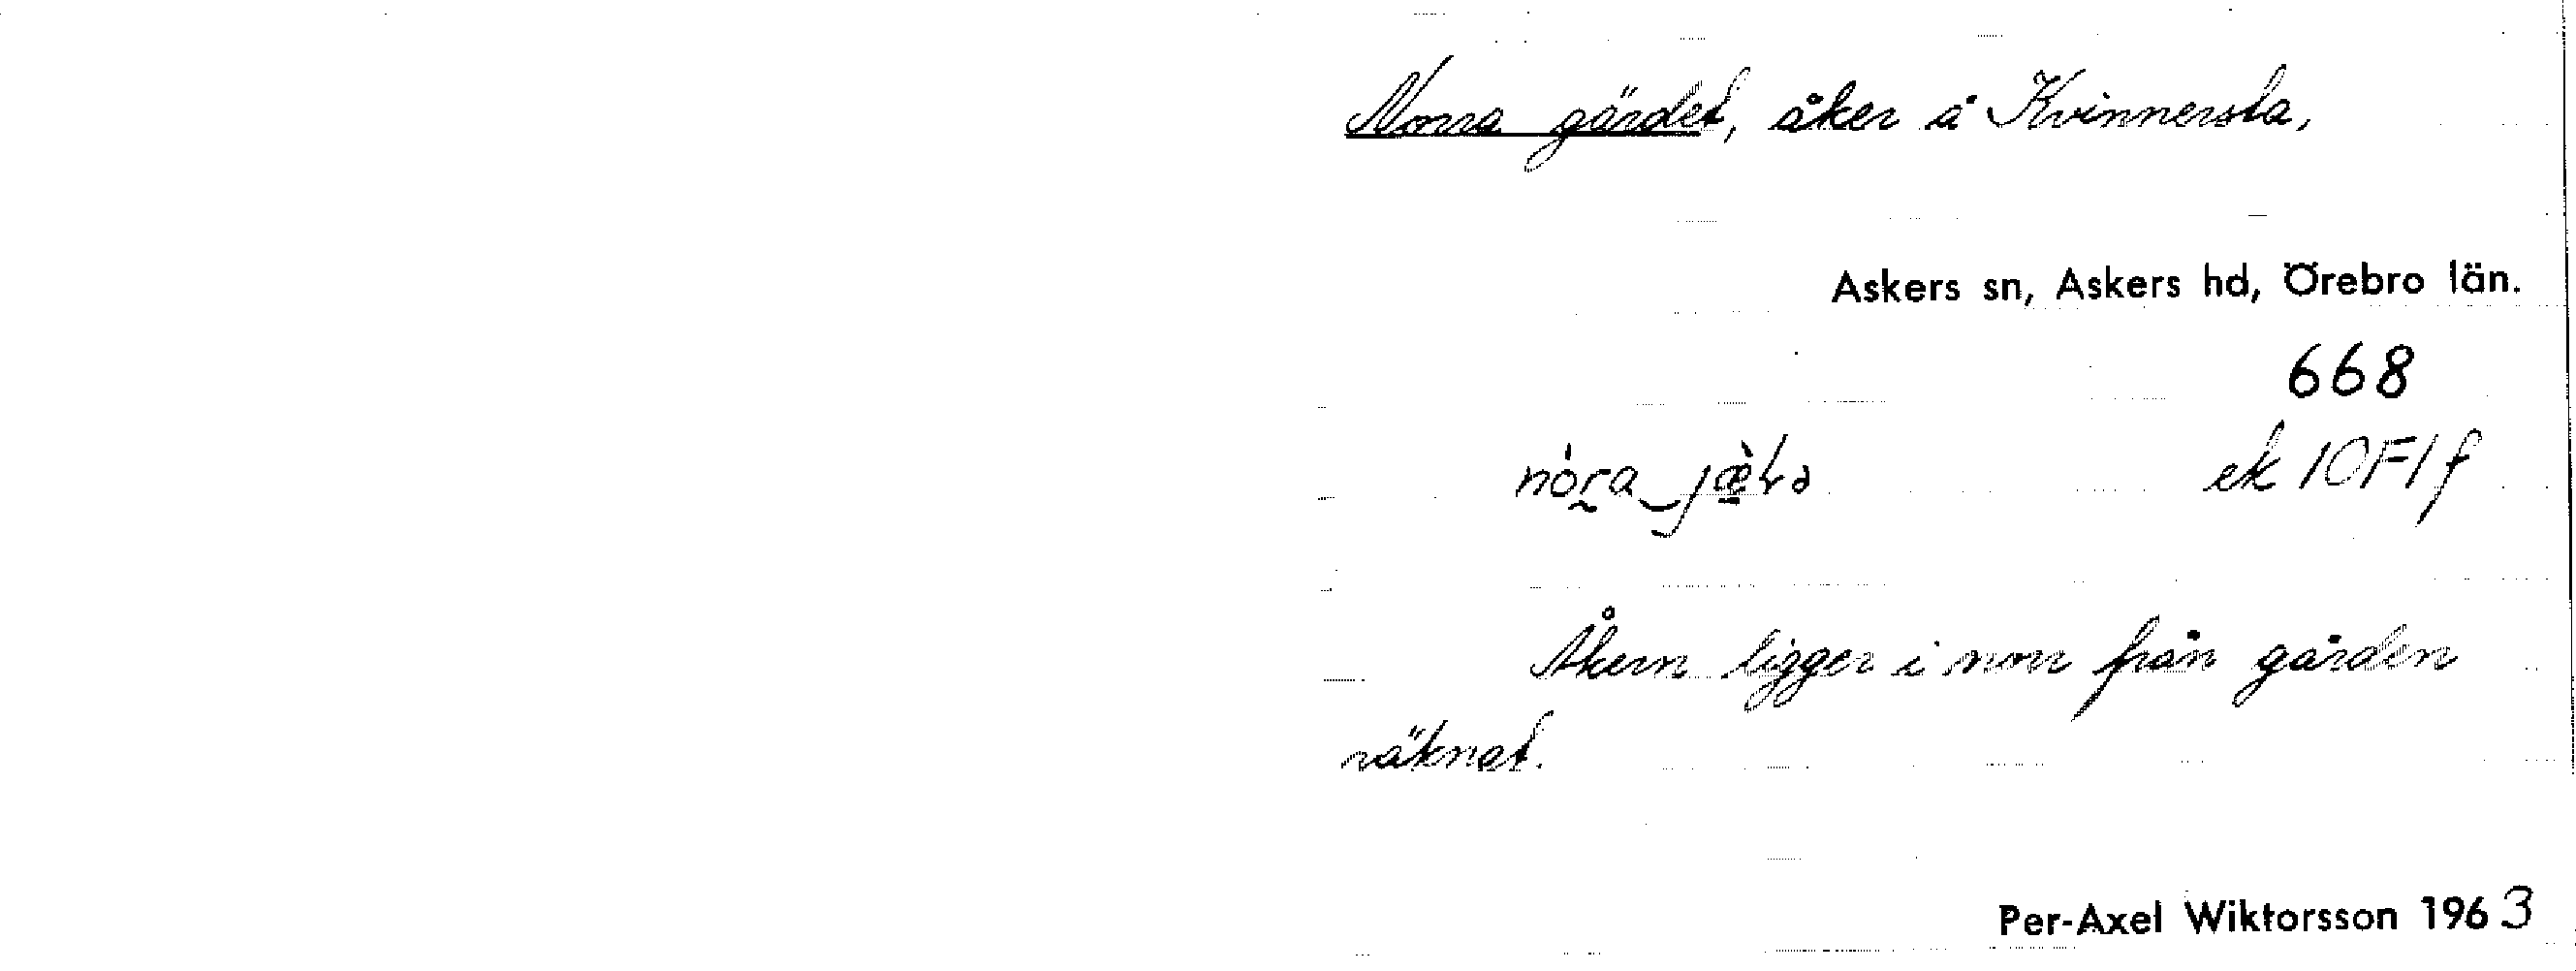 Norra gärdet, åker å Kvinnersta,
Askers sn, Askers hd, Örebro län.
668
ek 10F1f
Åkern ligger i norr från gården
räknat.
Per-Axel Wiktorsson 1963